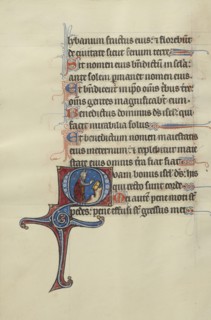 lybanum fructus eius: & florebunt
de civitate sicut fenum terre
Sit nomen eius bn̄dictum in secla:
ante solem permanet nomen eius.
Et bn̄dicentur in ip̄o om̄s tribus tr̄e:
om̄s gentes magnificabūt eum.
Benedictus dominus ds̄ isr̄l: qui
facit mirabilia solus
Et benedictum nomen maiestatis
eius in eternum: & replebitur maie
state eius omnis terra fiat fiat
Quam bonus isr̄l ds̄: his
qui recto sunt corde
Mei autem pene moti st̄
pedes: pene effusi st̄ gressus mei